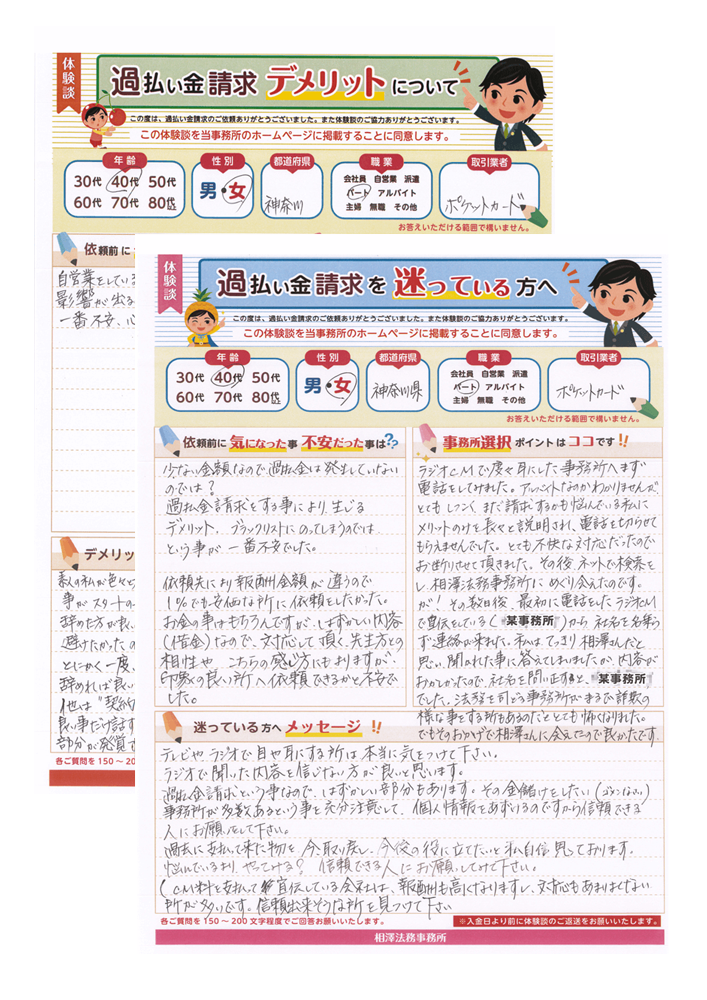 体験談
過払い金請求 デメリットについて
この度は、過払い金請求のご依頼ありがとうございました。また体験談のご協力ありがとうございます。
この体験談を当事務所のホームページに掲載することに同意します。
年齢
30代 40代 50代
60代 70代 80代以上
性別
男・女
都道府県
神奈川
職業
会社員 自営業 派遣
パート アルバイト
主婦 無職 その他
取引業者
ポケットカード
お答えいただける範囲で構いません。
依頼前に
自営業をしている
影響が出る
一番不安、心
デメリッ
素人の私が色々と
事がスタートの
辞めた方が良い
避けたかったの
とにかく一度、
辞めれば良い
他は"契約
良い事だけ話す
部分が発覚す
各ご質問を150～20
体験談
過払い金請求を迷っている方へ
この度は、過払い金請求のご依頼ありがとうございました。また体験談のご協力ありがとうございます。
この体験談を当事務所のホームページに掲載することに同意します。
年齢
30代 40代 50代
60代 70代 80代以上
性別
男・女
都道府県
神奈川県
職業
会社員 自営業 派遣
パート アルバイト
主婦 無職 その他
取引業者
ポケットカード
お答えいただける範囲で構いません。
依頼前に気になった事 不安だった事は??
少ない金額なので過払金は発生していない
のでは？
過払金請求をする事により生じる
デメリット、ブラックリストにのってしまうのでは
という事が一番不安でした。
依頼先により報酬金額が違うので
1%でも安価な所に依頼をしたかった。
お金の事はもちろんですが、はずかしい内容
(借金)なので、対応して頂く先生方との
相性や こちらの感じ方にもありますが、
印象の良い所へ依頼できるかと不安で
した。
事務所選択 ポイントはココです!!
ラジオCMで度々耳にした事務所へまず
電話をしてみました。アルバイトなのかわかりませんが、
とてもしつこく、まだ請求するかも悩んでいる私に
メリットのみを長々と説明され、電話を切らせて
もらえませんでした。とても不快な対応だったので
お断りさせて頂きました。その後、ネットで検索を
し、相澤法務事務所にめぐり会えたのです。
が！その数日後、最初に電話をしたラジオCM
で宣伝をしている(某事務所)から社名を名乗ら
ず連絡が来ました。私はてっきり相澤さんだと
思い、聞かれた事に答えてしまいましたが、内容が
おかしかったので、社名を問い正すと、某事務所
でした。法務を司どる事務所がまるで詐欺の
様な事をする所もあるのだととても怖くなりました。
でもそのおかげで相澤さんに会えたので良かったです
迷っている方へメッセージ!!
テレビやラジオで目や耳にする所は本当に気をつけて下さい。
ラジオで聞いた内容を信じない方が良いと思います。
過払い金請求という事なので、はずかしい部分もあります。その金儲けをしたい
事務所が多数あるという事を充分注意して、個人情報をあずけるのですから信頼できる
人にお願いをして下さい。
過去に支払って来た物を、今、取り戻し、今後の役に立てたいと私自信思っております。
悩んでいるより、やってみる？ 信頼できる人にお願いしてみて下さい。
(CM料を支払って宣伝している会社は、報酬も高くなりますし、対応もあまりよくない
所が多いです。信頼出来そうな所を見つけて下さい
各ご質問を150～200文字程度でご回答お願いいたします。
※入金日より前に体験談のご返送をお願いいたします。
相澤法務事務所